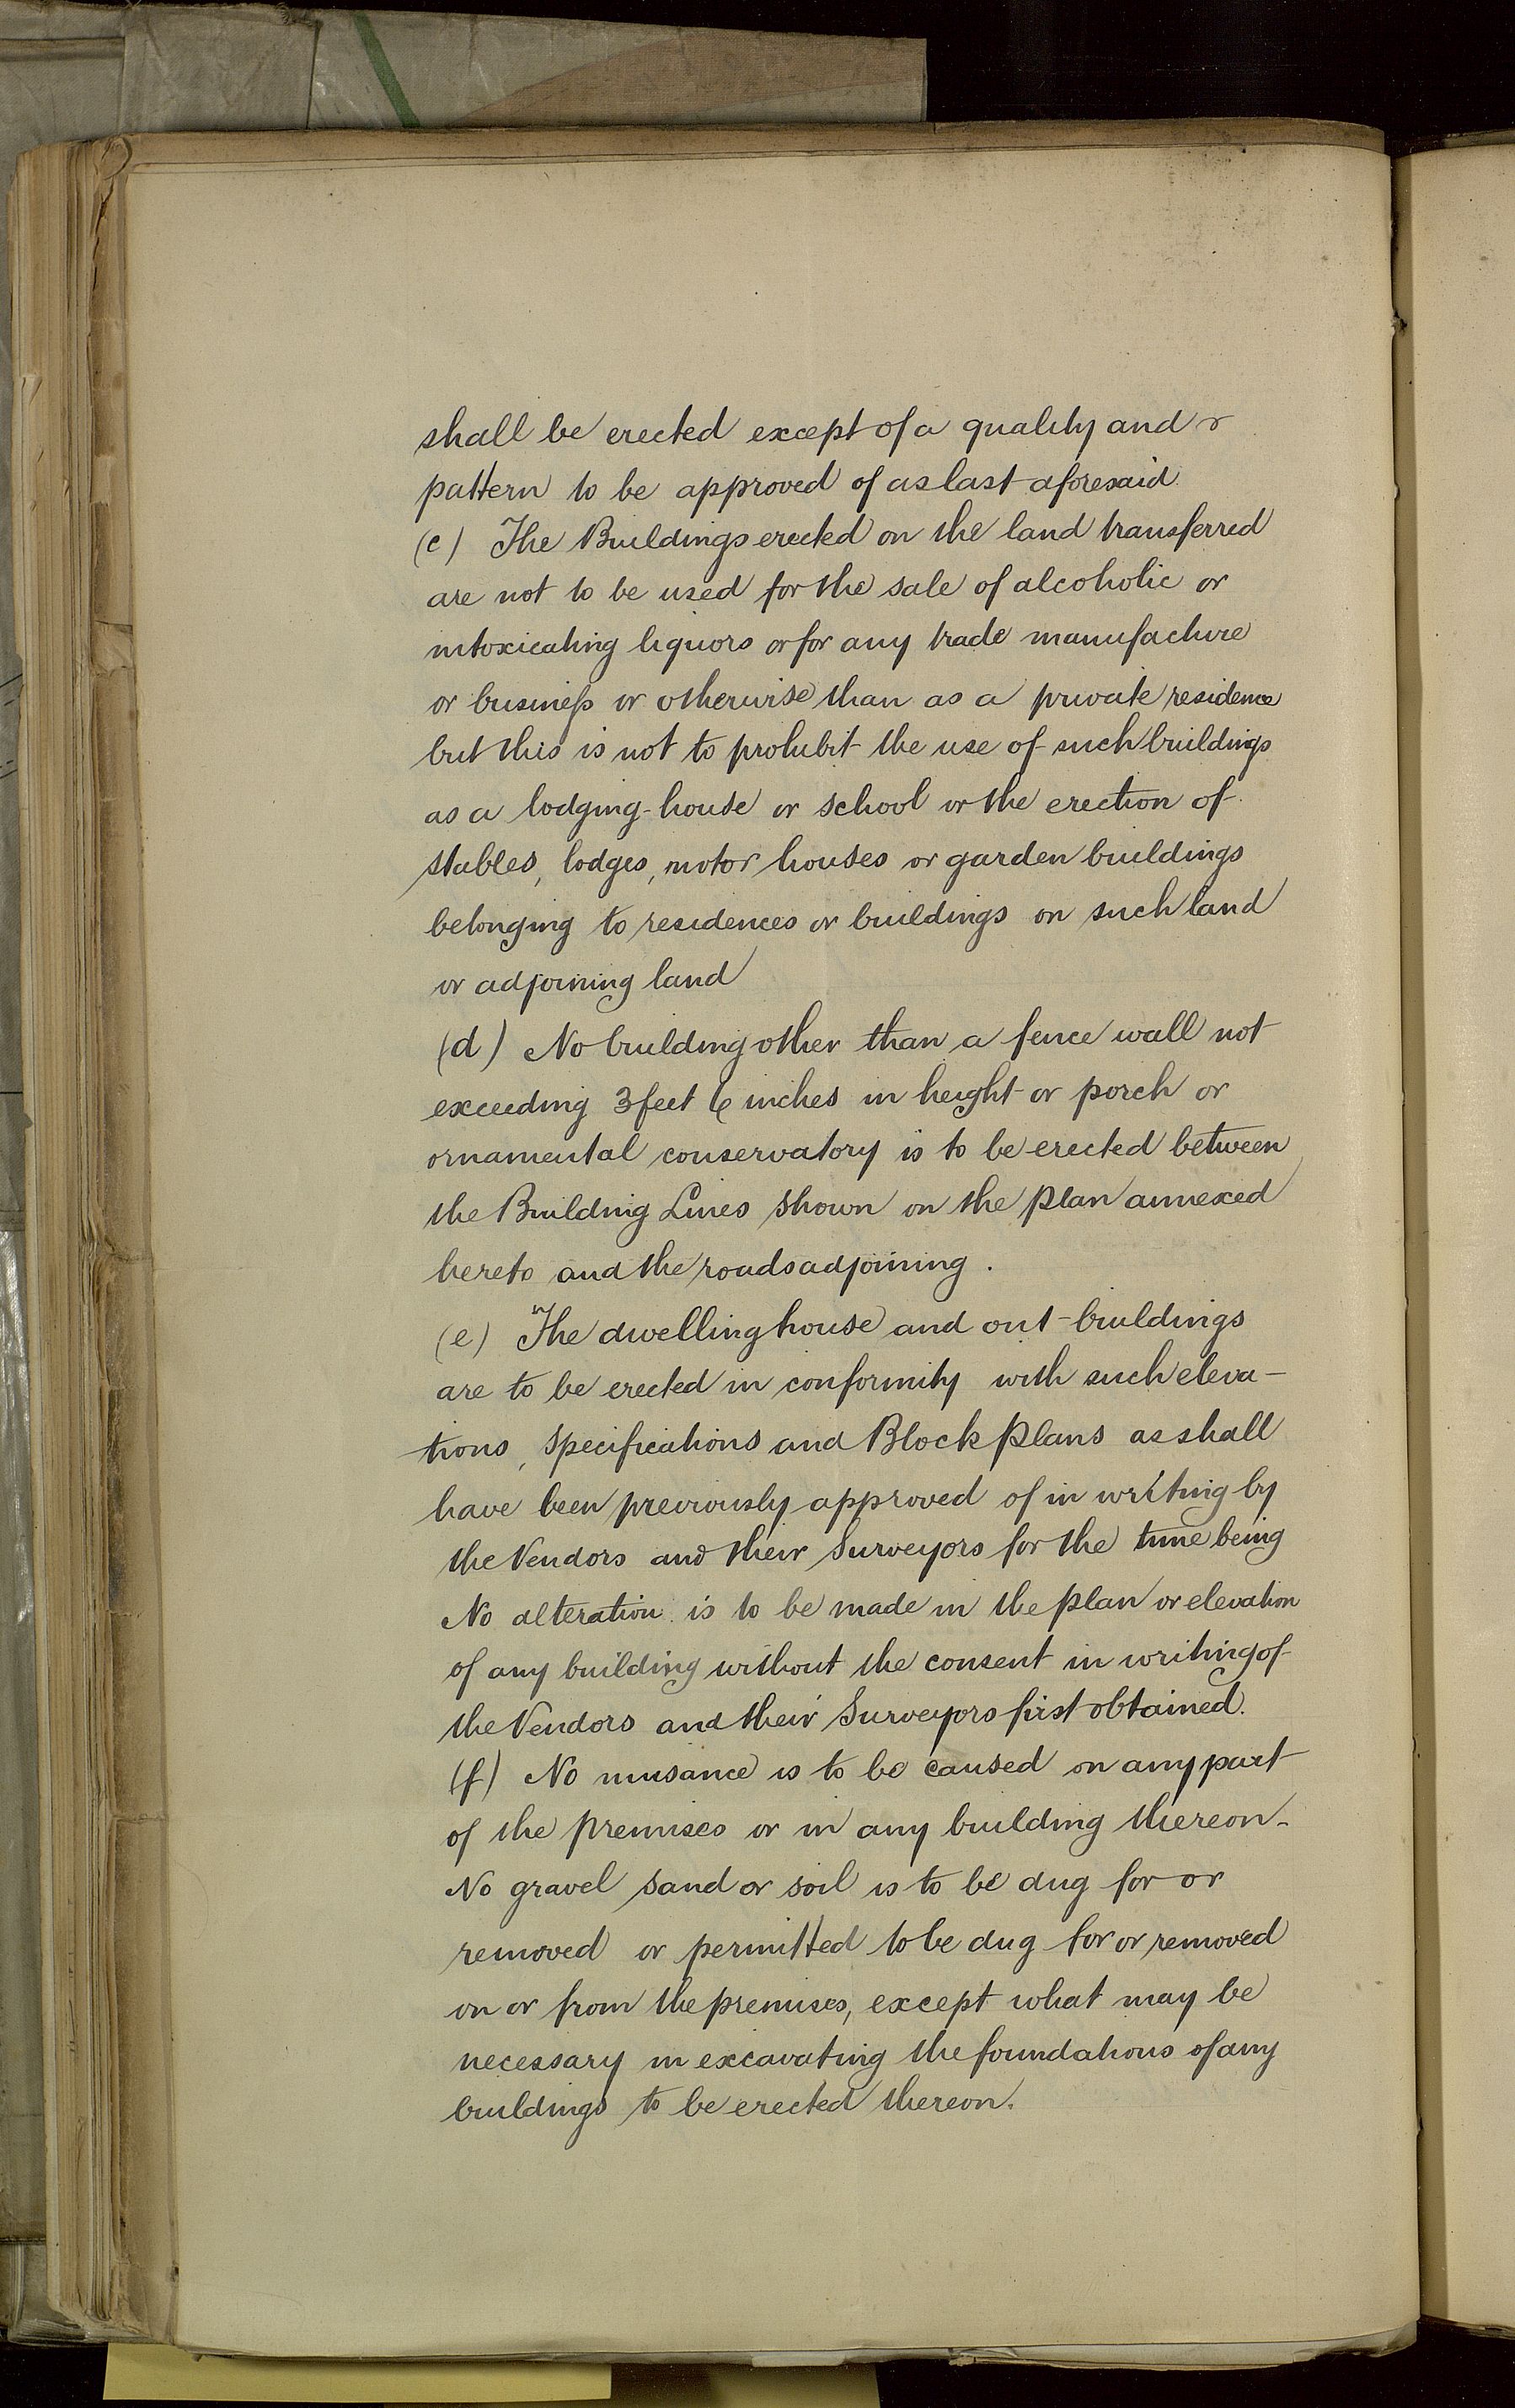 shall be erected except of a quality and
pattern to be approved of as last aforesaid.
(c) The Buildings erected on the land transferred
are not to be used for the sale of alcoholic or
intoxicating liquors or for any trade manufacture
or business or otherwise than as a private residence
but this is not to prohibit the use of such buildings
as a lodging-house or school or the erection of
stables, lodges, motor houses or garden buildings
belonging to residences or buildings on such land
or adjoining land
(d) No building other than a fence wall not
exceeding 3 feet 6 inches in height or porch or
ornamental conservatory is to be erected between
the Building Lines shown on the plan annexed
hereto and the roads adjoining.
(e) The dwelling house and out-buildings
are to be erected in conformity with such eleva-
tions, specifications and Block Plans as shall
have been previously approved of in writing by
the Vendors and their Surveyors for the time being
No alteration is to be made in the plan or elevation
of any building without the consent in writing of
the Vendors and their Surveyors first obtained.
(f) No nuisance is to be caused on any part
of the premises or in any building thereon.
No gravel sand or soil is to be dug for or
removed or permitted to be dug for or removed
on or from the premises, except what may be
necessary in excavating the foundations of any
buildings to be erected thereon.